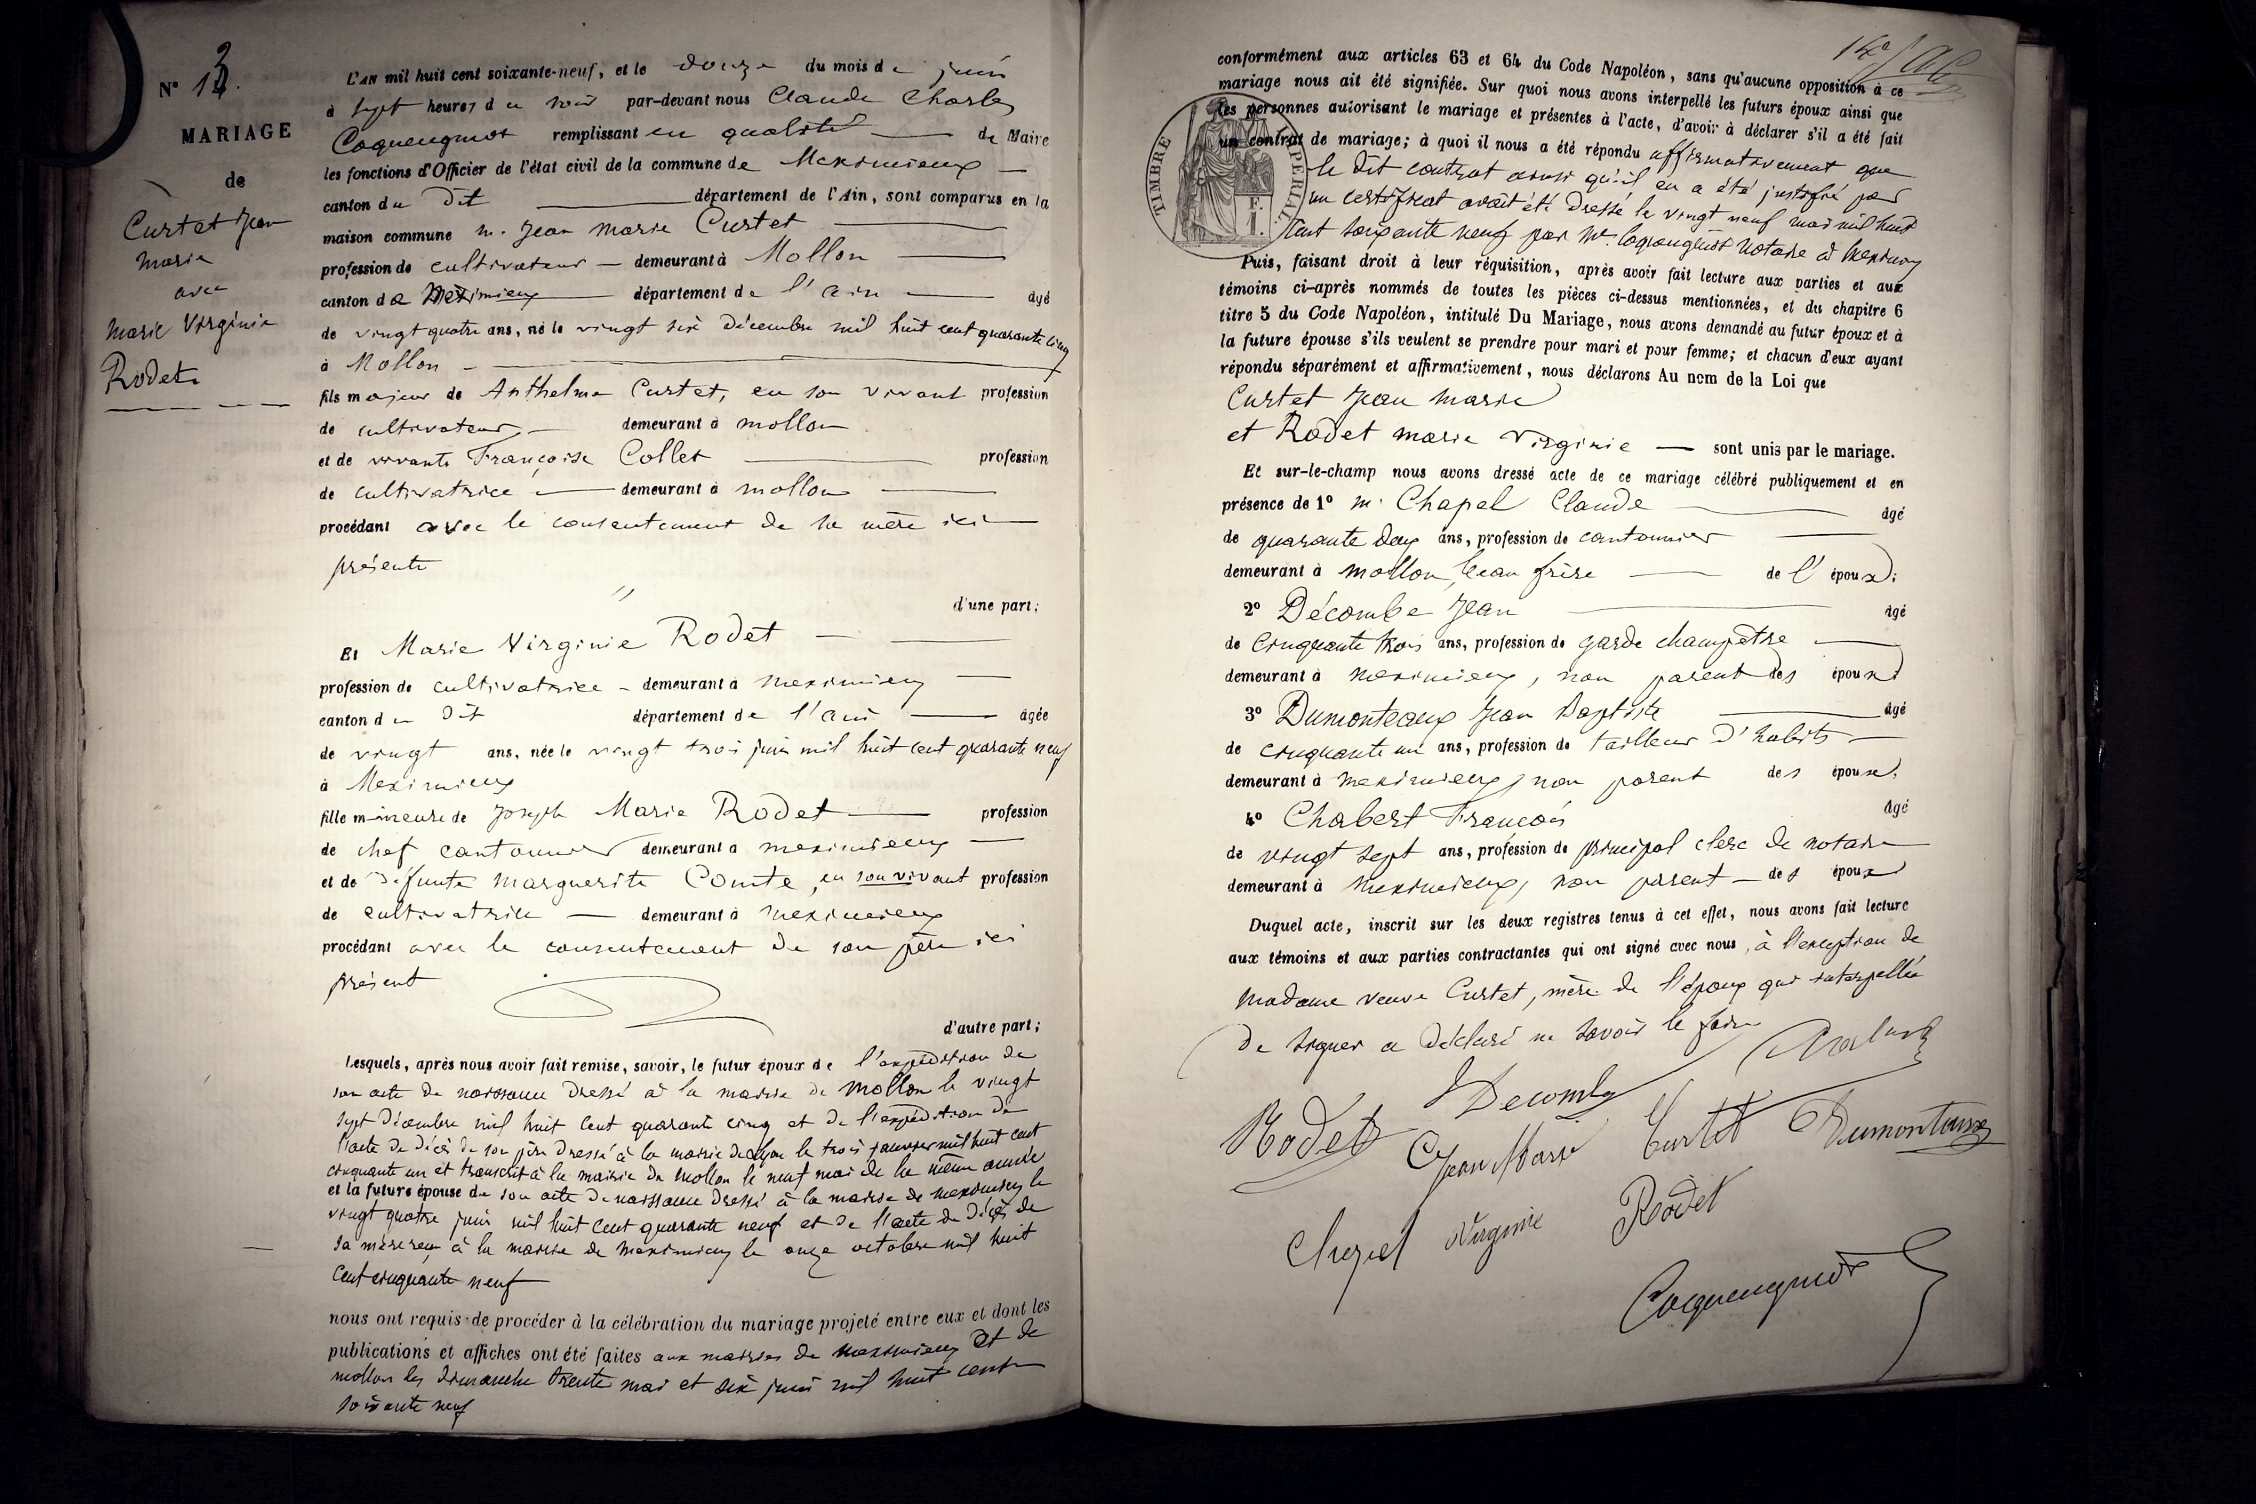 N° 13.
MARIAGE
de
Curtet Jean
Marie
avec
Marie Virginie
Rodet
L'AN mil huit cent soixante-neuf, et le douze du mois de juin
à sept heures du soir par-devant nous Claude Charles
Coquengniot remplissant en qualité de Maire
les fonctions d'Officier de l'état civil de la commune de Meximieux
canton du dit département de l'Ain, sont comparus en la
maison commune M. Jean Marie Curtet
profession de cultivateur demeurant à Mollon
canton de Meximieux département de l'ain âgé
de vingt quatre ans, né le vingt six décembre mil huit cent quarante cinq
à Mollon
fils majeur de Anthelme Curtet, en son vivant profession
de cultivateur demeurant à mollon
et de vivante Françoise Collet profession
de cultivatrice demeurant à mollon
procédant avec le consentement de sa mère ici
présente
d'une part;
Et Marie Virginie Rodet
profession de cultivatrice demeurant à meximieux
canton du dit département de l'ain âgée
de vingt ans, née le vingt trois juin mil huit cent quarante neuf
à Meximieux
fille mineure de Joseph Marie Rodet profession
de chef cantonnier demeurant à meximieux
et de défunte Marguerite Comte, en son vivant profession
de cultivatrice demeurant à meximieux
procédant avec le consentement de son père ici
présent
d'autre part;
Lesquels, après nous avoir fait remise, savoir, le futur époux de l'expédition de
son acte de naissance dressé à la mairie de Mollon le vingt
sept décembre mil huit cent quarante cinq et de l'expédition de
l'acte de décès de son père dressé à la mairie de Lyon le trois janvier mil huit cent
cinquante un et transcrit à la mairie de Mollon le neuf mai de la même année
et la future épouse de son acte de naissance dressé à la mairie de meximieux le
vingt quatre juin mil huit cent quarante neuf et de l'acte de décès de
sa mère reçu à la mairie de meximieux le onze octobre mil huit
cent cinquante neuf
nous ont requis de procéder à la célébration du mariage projeté entre eux et dont les
publications et affiches ont été faites aux mairies de meximieux et de
mollon les dimanche trente mai et six juin mil huit cent
soixante neuf
14e
TIMBRE IMPERIAL
F.
1.
conformément aux articles 63 et 64 du Code Napoléon, sans qu'aucune opposition à ce
mariage nous ait été signifiée. Sur quoi nous avons interpellé les futurs époux ainsi que
les personnes autorisant le mariage et présentes à l'acte, d'avoir à déclarer s'il a été fait
un contrat de mariage; à quoi il nous a été répondu affirmativement que
le dit contrat ainsi qu'il en a été justifié par
un certificat avait été dressé le vingt neuf mai mil huit
cent soixante neuf par Me. Coquengniot Notaire à Meximieux
Puis, faisant droit à leur réquisition, après avoir fait lecture aux parties et aux
témoins ci-après nommés de toutes les pièces ci-dessus mentionnées, et du chapitre 6
titre 5 du Code Napoléon, intitulé Du Mariage, nous avons demandé au futur époux et à
la future épouse s'ils veulent se prendre pour mari et pour femme; et chacun d'eux ayant
répondu séparément et affirmativement, nous déclarons Au nom de la Loi que
Curtet Jean Marie
et Rodet marie Virginie sont unis par le mariage.
Et sur-le-champ nous avons dressé acte de ce mariage célébré publiquement et en
présence de 1° M. Chapel Claude âgé
de quarante deux ans, profession de cantonnier
demeurant à mollon, beau frère de l'époux;
2° Décombe Jean âgé
de cinquante trois ans, profession de garde champêtre
demeurant à meximieux, non parent des époux;
3° Dumonteaux Jean Baptiste âgé
de cinquante un ans, profession de tailleur d'habits
demeurant à meximieux, non parent des époux;
4° Chabert François âgé
de vingt sept ans, profession de principal clerc de notaire
demeurant à meximieux, non parent des époux
Duquel acte, inscrit sur les deux registres tenus à cet effet, nous avons fait lecture
aux témoins et aux parties contractantes qui ont signé avec nous, à l'exception de
Madame veuve Curtet, mère de l'époux qui interpellée
de signer a déclaré ne savoir le faire
Decombe
Rodet Jean Marie Curtet Dumontaux
Chapel Virginie Rodet
Coquengniot